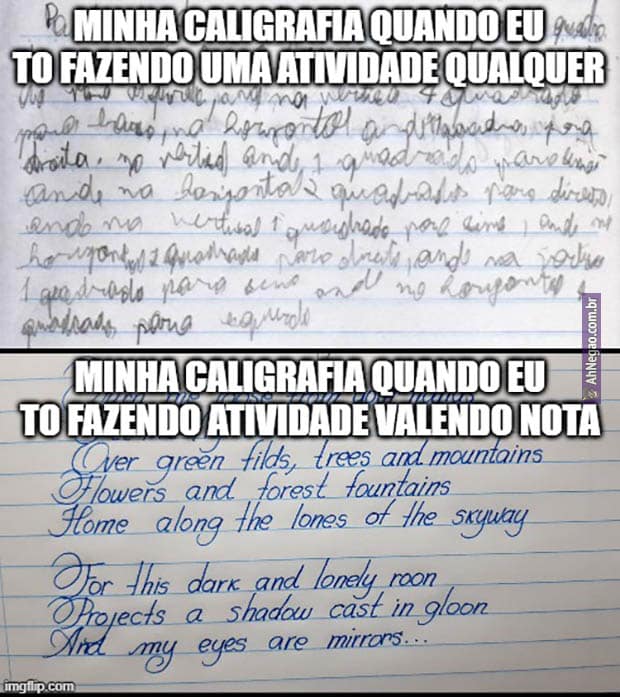 MINHA CALIGRAFIA QUANDO EU
TO FAZENDO UMA ATIVIDADE QUALQUER
na vertical 4 quadrados
para baixo, na horizontal para
direita. na vertical ande 1 quadrado para cima
ande na horizontal 2 quadrados para direita,
ando na vertical 1 quadrado para cima, ande na
horizontal 2 quadrado para direita, ande na
1 quadrado para cima ande na horizontal
quadrados para esquerda
AhNegao.com.br
MINHA CALIGRAFIA QUANDO EU
TO FAZENDO ATIVIDADE VALENDO NOTA
Over green filds, trees and mountains
Flowers and forest fountains
Home along the lones of the skyway
For this dark and lonely roon
Projects a shadow cast in gloon
And my eyes are mirrors...
imgflip.com